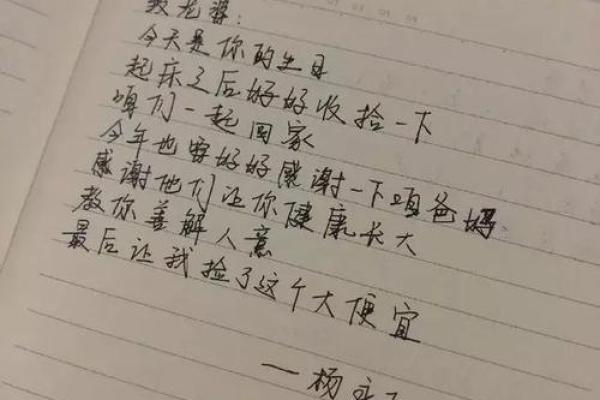 致老婆：
今天是你的生日
起床之后好好收拾一下
咱们一起回家
今年也要好好感谢一下咱爸妈
感谢他们让你健康长大
教你善解人意
最后让我捡了这个大便宜
——杨